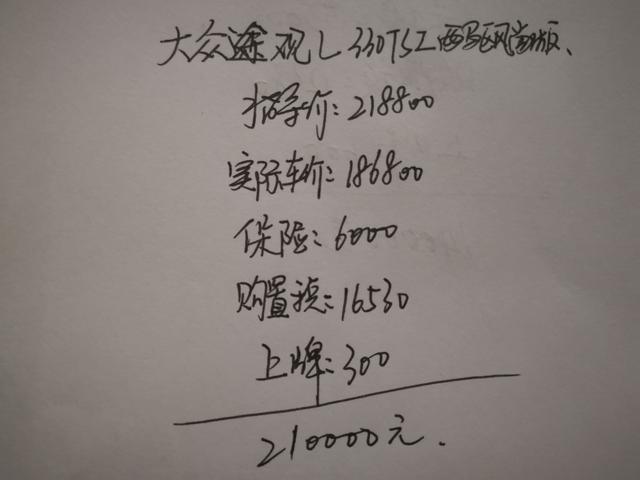 大众途观L 330TSI两驱风尚版、
指导价：218800
实际车价：186800
保险：6000
购置税：16530
上牌：300
210000元.